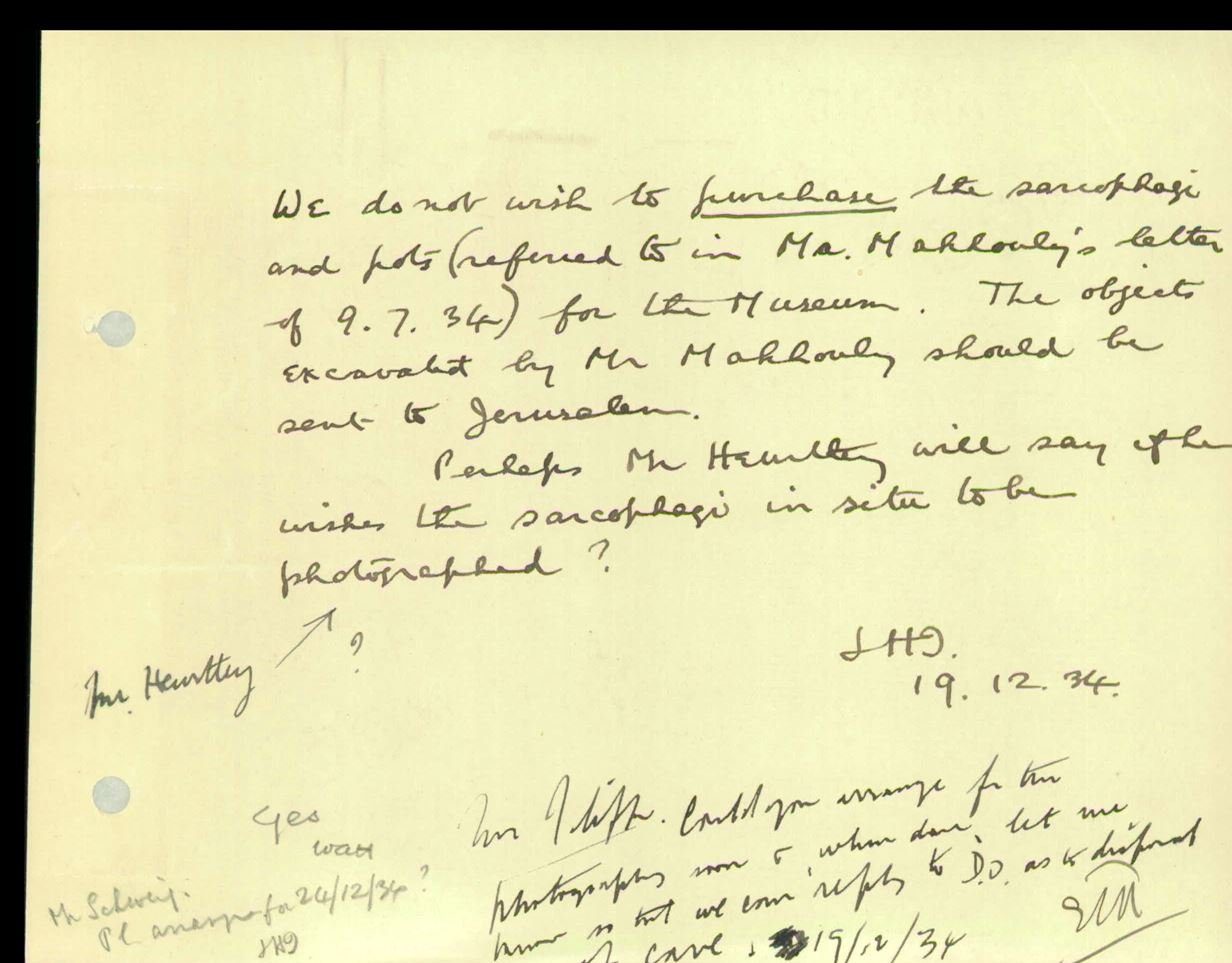 We do not wish to purchase the sarcophagi
and pots (referred to in Mr. Makhouly's letter
of 9. 7. 34) for the Museum. The objects
excavated by Mr Makhouly should be
sent to Jerusalem.
Perhaps Mr Heurtley will say if he
wishes the sarcophagi in situ to be
photographed ?
JHI.
19. 12. 34.
Mr. Heurtley ?
Mr Iliffe. Could you arrange for the
photographing soon & when done, let me
know so that we can reply to D.O. as to disposal
of cave. 19/12/34
Yes
WAH
Mr Schweig.
Pl. arrange for 24/12/34 ?
JHI